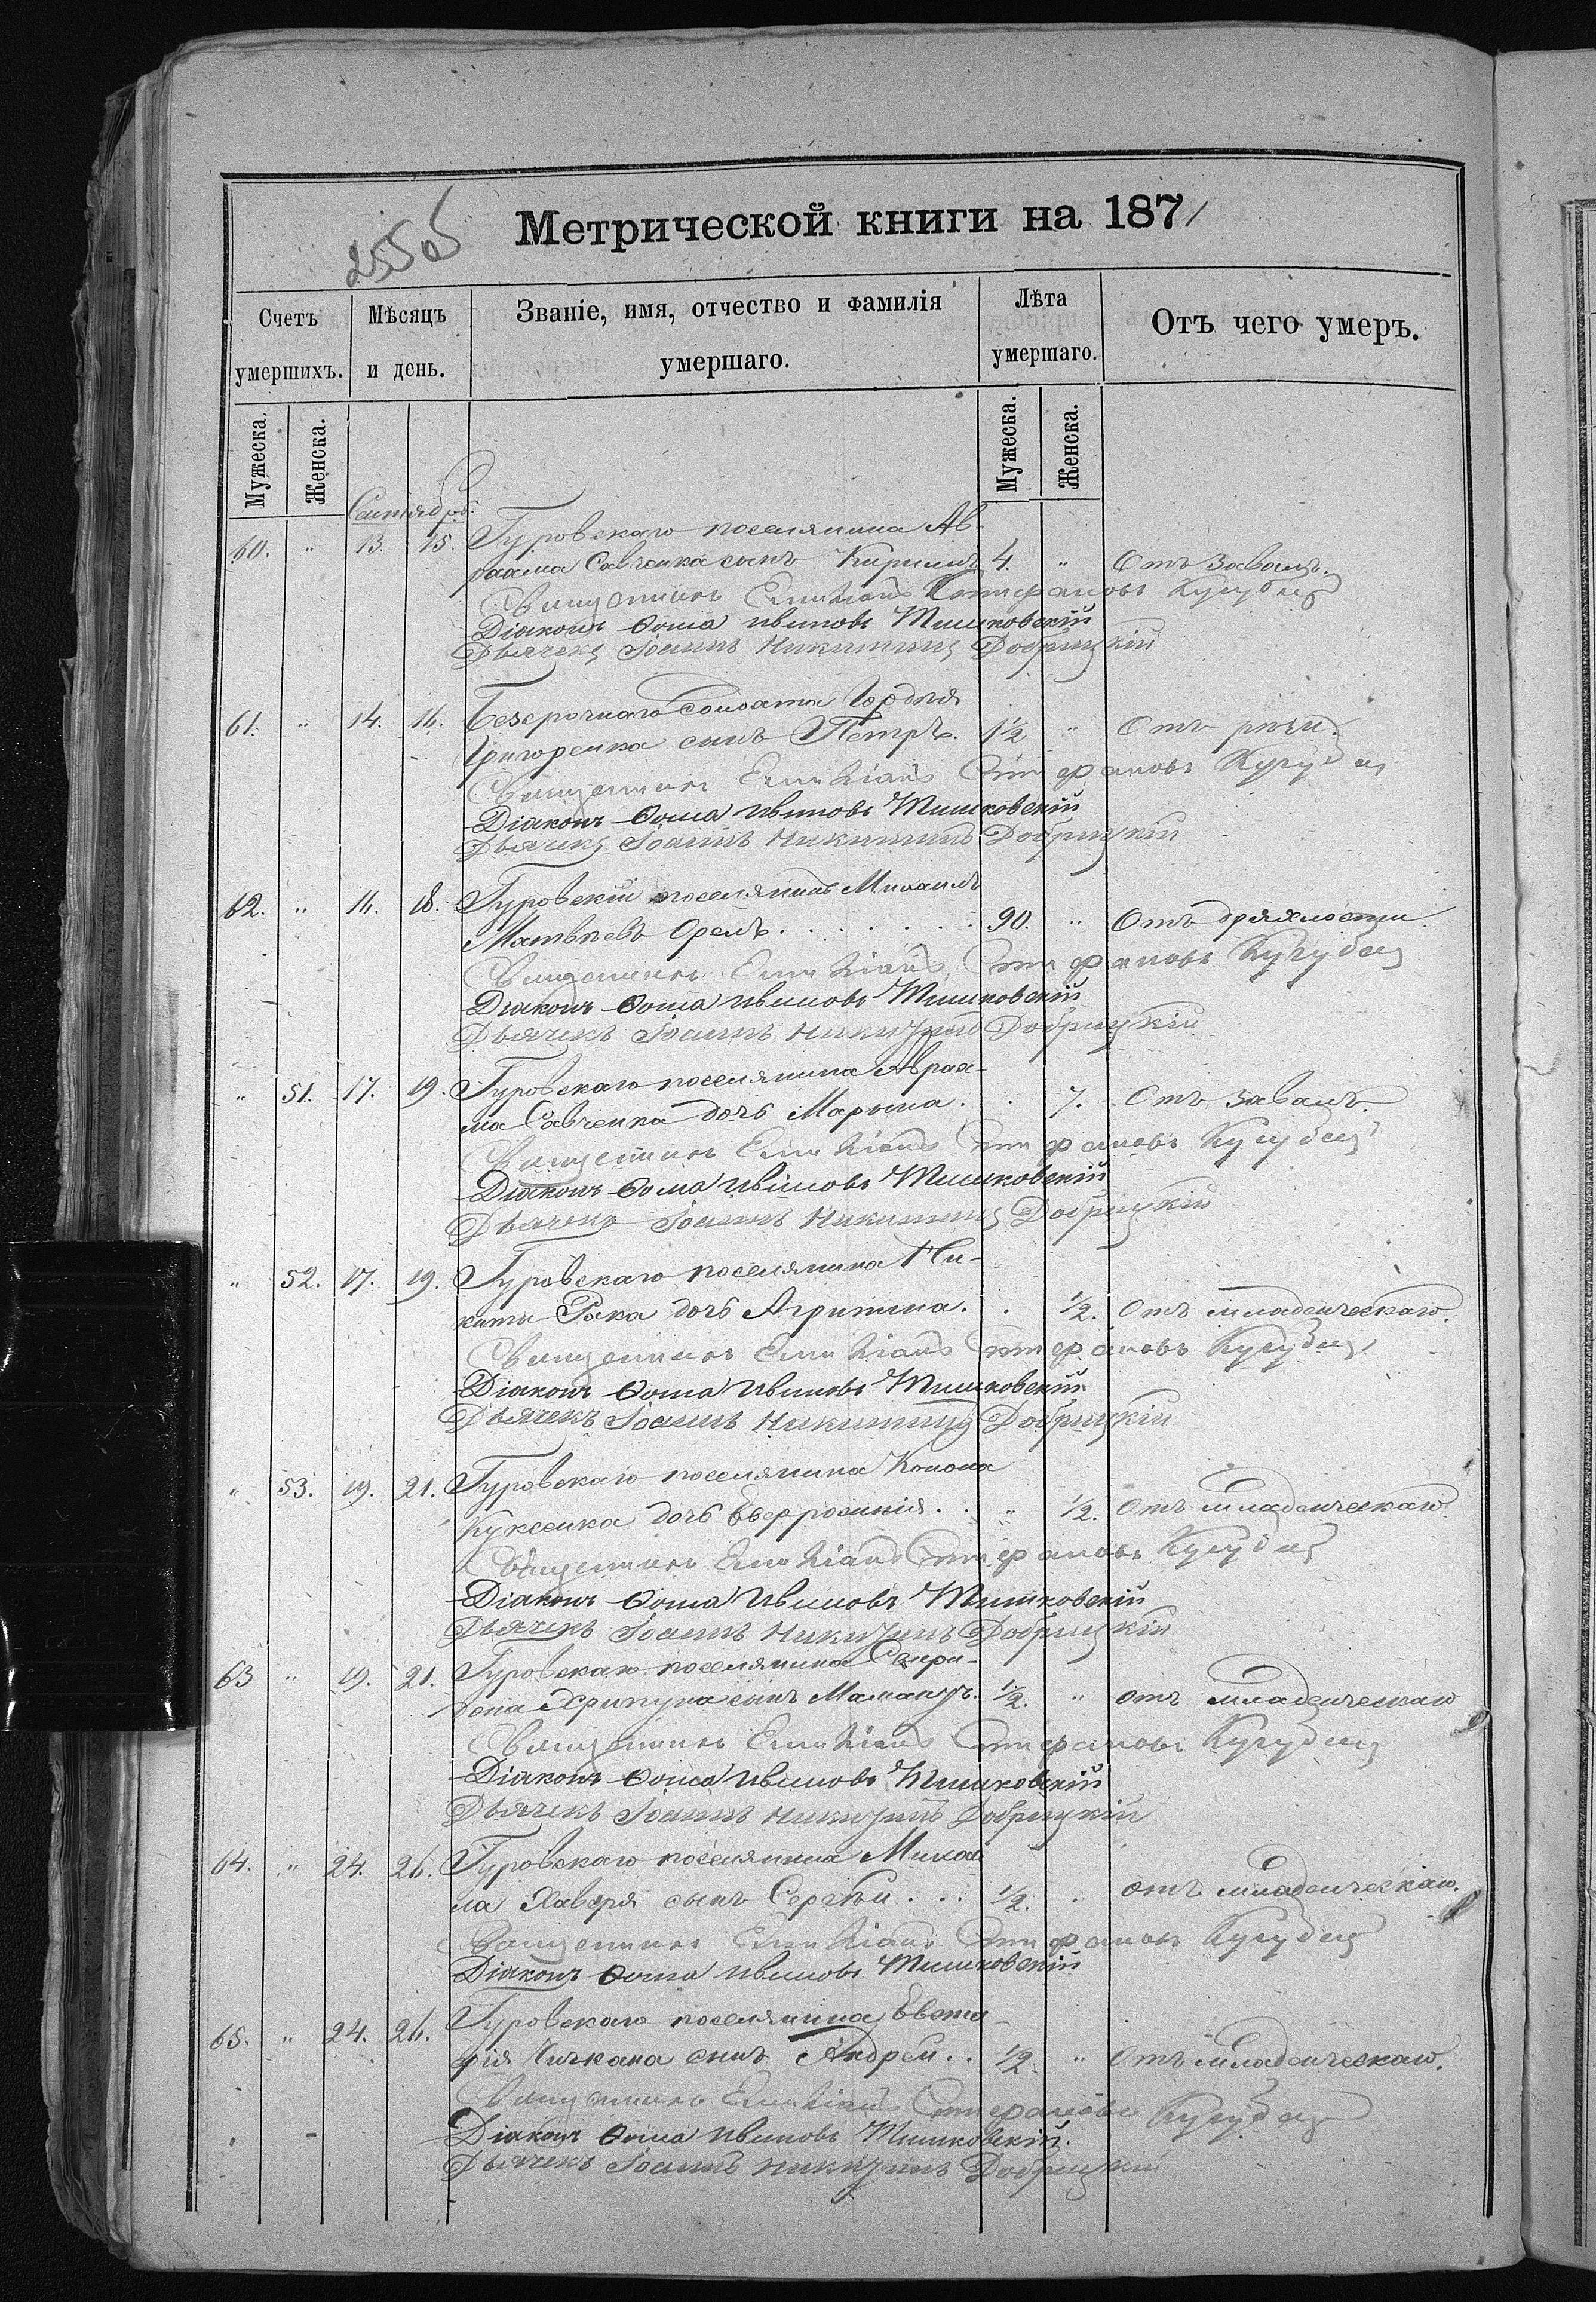 Метрической книги на 1871
2550б
Счетъ умершихъ. Мѣсяцъ и день. Званіе, имя, отчество и фамилія умершаго. Лѣта умершаго. Отъ чего умеръ.
Мужеска. Женска. Мужеска. Женска.
Сентябрь.
60. " 13. 15. Гуровскаго поселянина Ав-
раама Савченка сынъ Кириллъ 4. " Отъ завалъ.
Священникъ Емиліанъ Стефановъ
Діаконъ Ѳома Ивановъ Тишковскій
Дьячекъ Іоаннъ Никитинъ Добрицкій
61. " 14. 16. Безсрочнаго Солдата Гордѣя
Григоренка сынъ Петръ. 1½ "
Священникъ Емиліанъ Стефановъ
Діаконъ Ѳома Ивановъ Тишковскій
Дьячекъ Іоаннъ Никитинъ Добрицкій
62. " 16. 18. Гуровскій поселянинъ Михаилъ
Матвѣевъ Орелъ 90. " Отъ дряхлости
Священникъ Емиліанъ Стефановъ
Діаконъ Ѳома Ивановъ Тишковскій
Дьячекъ Іоаннъ Никитинъ Добрицкій
" 51. 17. 19. Гуровскаго поселянина Авраа-
ма Савченка дочь Марина. . 7. Отъ завалъ.
Священникъ Емиліанъ Стефановъ
Діаконъ Ѳома Ивановъ Тишковскій
Дьячекъ Іоаннъ Никитинъ Добрицкій
" 52. 17. 19. Гуровскаго поселянина Ни-
киты Рака дочь Агрипина. . ½. Отъ младенческаго.
Священникъ Емиліанъ Стефановъ
Діаконъ Ѳома Ивановъ Тишковскій
Дьячекъ Іоаннъ Никитинъ Добрицкій
" 53. 19. 21. Гуровскаго поселянина Конона
Куксенка дочь Евфросинія. . " ½. Отъ младенческаго
Священникъ Емиліанъ Стефановъ
Діаконъ Ѳома Ивановъ Тишковскій
Дьячекъ Іоаннъ Никитинъ Добрицкій
63 " 19. 21. Гуровскаго поселянина Спири-
дона сынъ ½. " отъ младенческаго
Священникъ Емиліанъ Стефановъ
Діаконъ Ѳома Ивановъ Тишковскій
Дьячекъ Іоаннъ Никитинъ Добрицкій
64. " 24. 26. Гуровскаго поселянина Михаи
ла сынъ Сергѣй . . . ½. " отъ младенческаго.
Священникъ Емиліанъ Стефановъ
Діаконъ Ѳома Ивановъ Тишковскій
65. " 24. 26. Гуровскаго поселянина Евста-
фія сынъ Андрей . . ½. " Отъ младенческаго.
Священникъ Емиліанъ Стефановъ
Діаконъ Ѳома Ивановъ Тишковскій.
Дьячекъ Іоаннъ Никитинъ Добрицкій